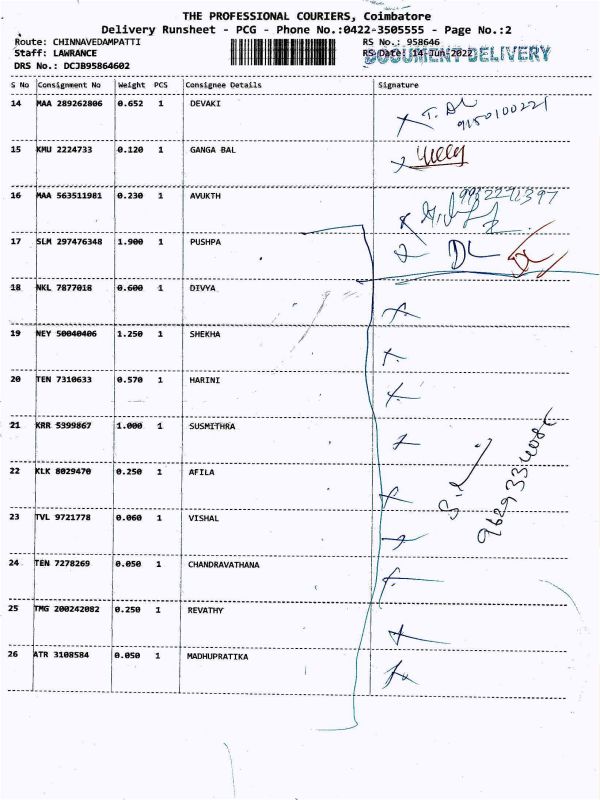 THE PROFESSIONAL COURIERS, Coimbatore
Delivery Runsheet - PCG - Phone No.:0422-3505555 - Page No.:2
Route: CHINNAVEDAMPATTI RS No.: 958646
Staff: LAWRANCE RS Date: 14-Jun-2022
DOCUMENT DELIVERY
DRS No.: DCJB95864602
S No Consignment No Weight PCS Consignee Details Signature
14 MAA 289262806 0.652 1 DEVAKI
9150100221
15 KMU 2224733 0.120 1 GANGA BAL
16 MAA 563511981 0.230 1 AVUKTH
17 SLM 297476348 1.900 1 PUSHPA
18 NKL 7877018 0.600 1 DIVYA
19 NEY 50040406 1.250 1 SHEKHA
20 TEN 7310633 0.570 1 HARINI
21 KRR 5399867 1.000 1 SUSMITHRA
22 KLK 8029470 0.250 1 AFILA
23 TVL 9721778 0.060 1 VISHAL
24 TEN 7278269 0.050 1 CHANDRAVATHANA
25 TMG 200242082 0.250 1 REVATHY
26 ATR 3108584 0.050 1 MADHUPRATIKA